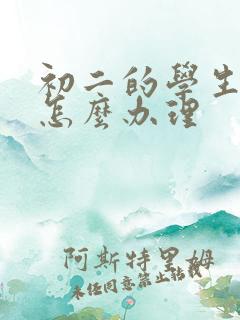 初二的學生
怎麼办理
阿斯特里姆
未经同意禁止转载